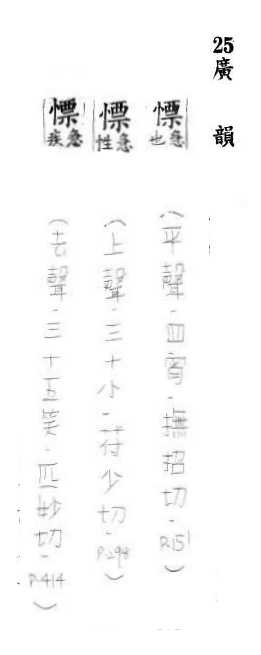 25廣韻
慓急也
(平聲.四宵.撫招切.P.151)
慓急性
(上聲.三十小.苻少切.P.298)
慓急疾
(去聲.三十五笑.匹妙切.P.414)